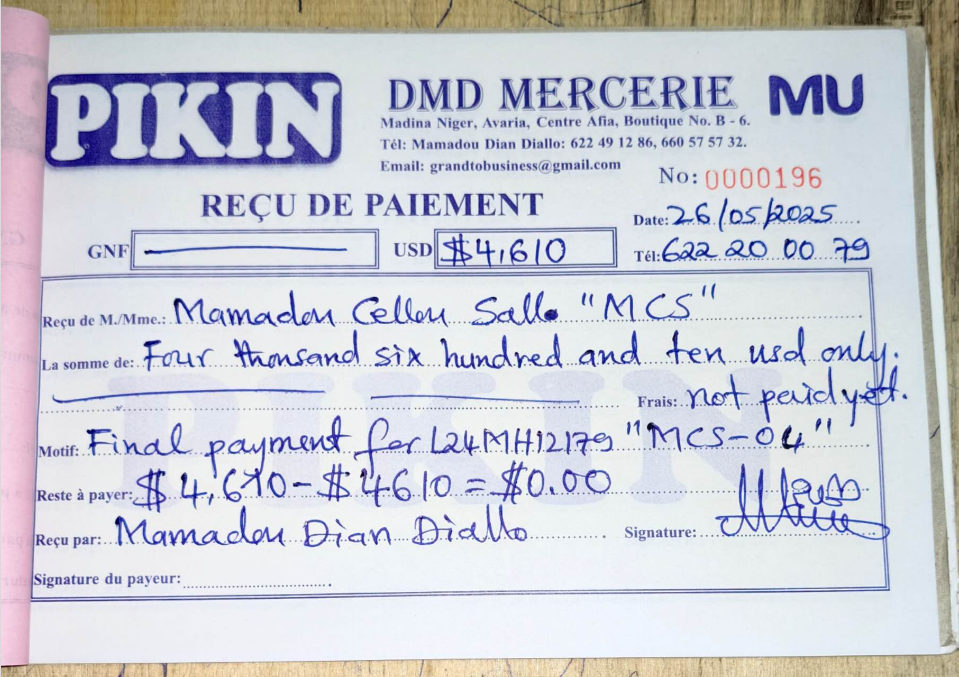 PIKIN
DMD MERCERIE MU
Madina Niger, Avaria, Centre Afia, Boutique No. B - 6.
Tél: Mamadou Dian Diallo: 622 49 12 86, 660 57 57 32.
Email: grandtobusiness@gmail.com
No: 0000196
REÇU DE PAIEMENT
Date: 26/05/2025
GNF USD $4,610
Tél: 622 20 00 79
Reçu de M./Mme.: Mamadou Cellou Sallo "MCS"
La somme de: Four thousand six hundred and ten usd only.
Frais: not paid yet.
Motif: Final payment for L24MH12179 "MCS-04"
Reste à payer: $4,610-$4610=$0.00
Reçu par: Mamadou Dian Diallo Signature:
Signature du payeur:
PIKIN